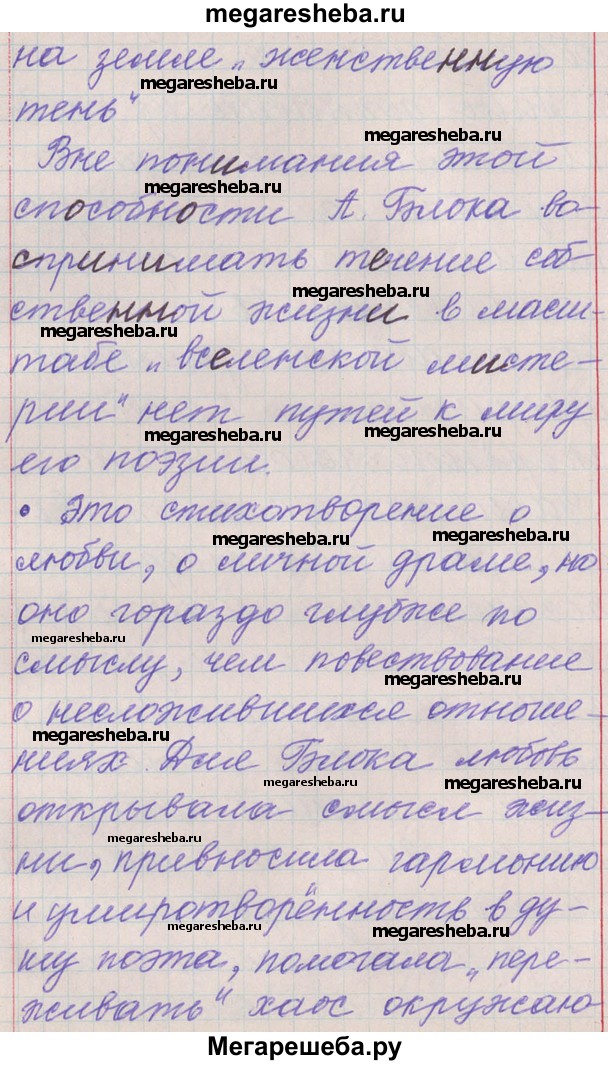 megaresheba.ru
на земле „женственную
megaresheba.ru
тень“
megaresheba.ru
Вне понимания этой
megaresheba.ru
способности А. Блока во-
спринимать течение соб-
megaresheba.ru
ственной жизни в масш-
megaresheba.ru
табе „вселенской мисте-
рии“ нет путей к миру
megaresheba.ru megaresheba.ru
его поэзии.
• Это стихотворение о
megaresheba.ru
любви, о личной драме, но
оно гораздо глубже по
megaresheba.ru
смыслу, чем повествование
megaresheba.ru
о несложившихся отноше-
megaresheba.ru
ниях. Для Блока любовь
megaresheba.ru megaresheba.ru
открывала смысл жиз-
megaresheba.ru
ни, привносила гармонию
и умиротворённость в ду-
megaresheba.ru megaresheba.ru
шу поэта, помогала „пере-
живать“ хаос окружаю
Мегарешеба.ру